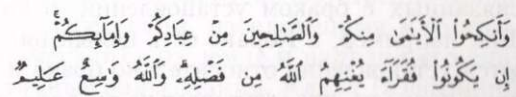 وَأَنكِحُوا۟ ٱلْأَيَـٰمَىٰ مِنكُمْ وَٱلصَّـٰلِحِينَ مِنْ عِبَادِكُمْ وَإِمَآئِكُمْ ۚ
إِن يَكُونُوا۟ فُقَرَآءَ يُغْنِهِمُ ٱللَّهُ مِن فَضْلِهِۦ ۗ وَٱللَّهُ وَٰسِعٌ عَلِيمٌ